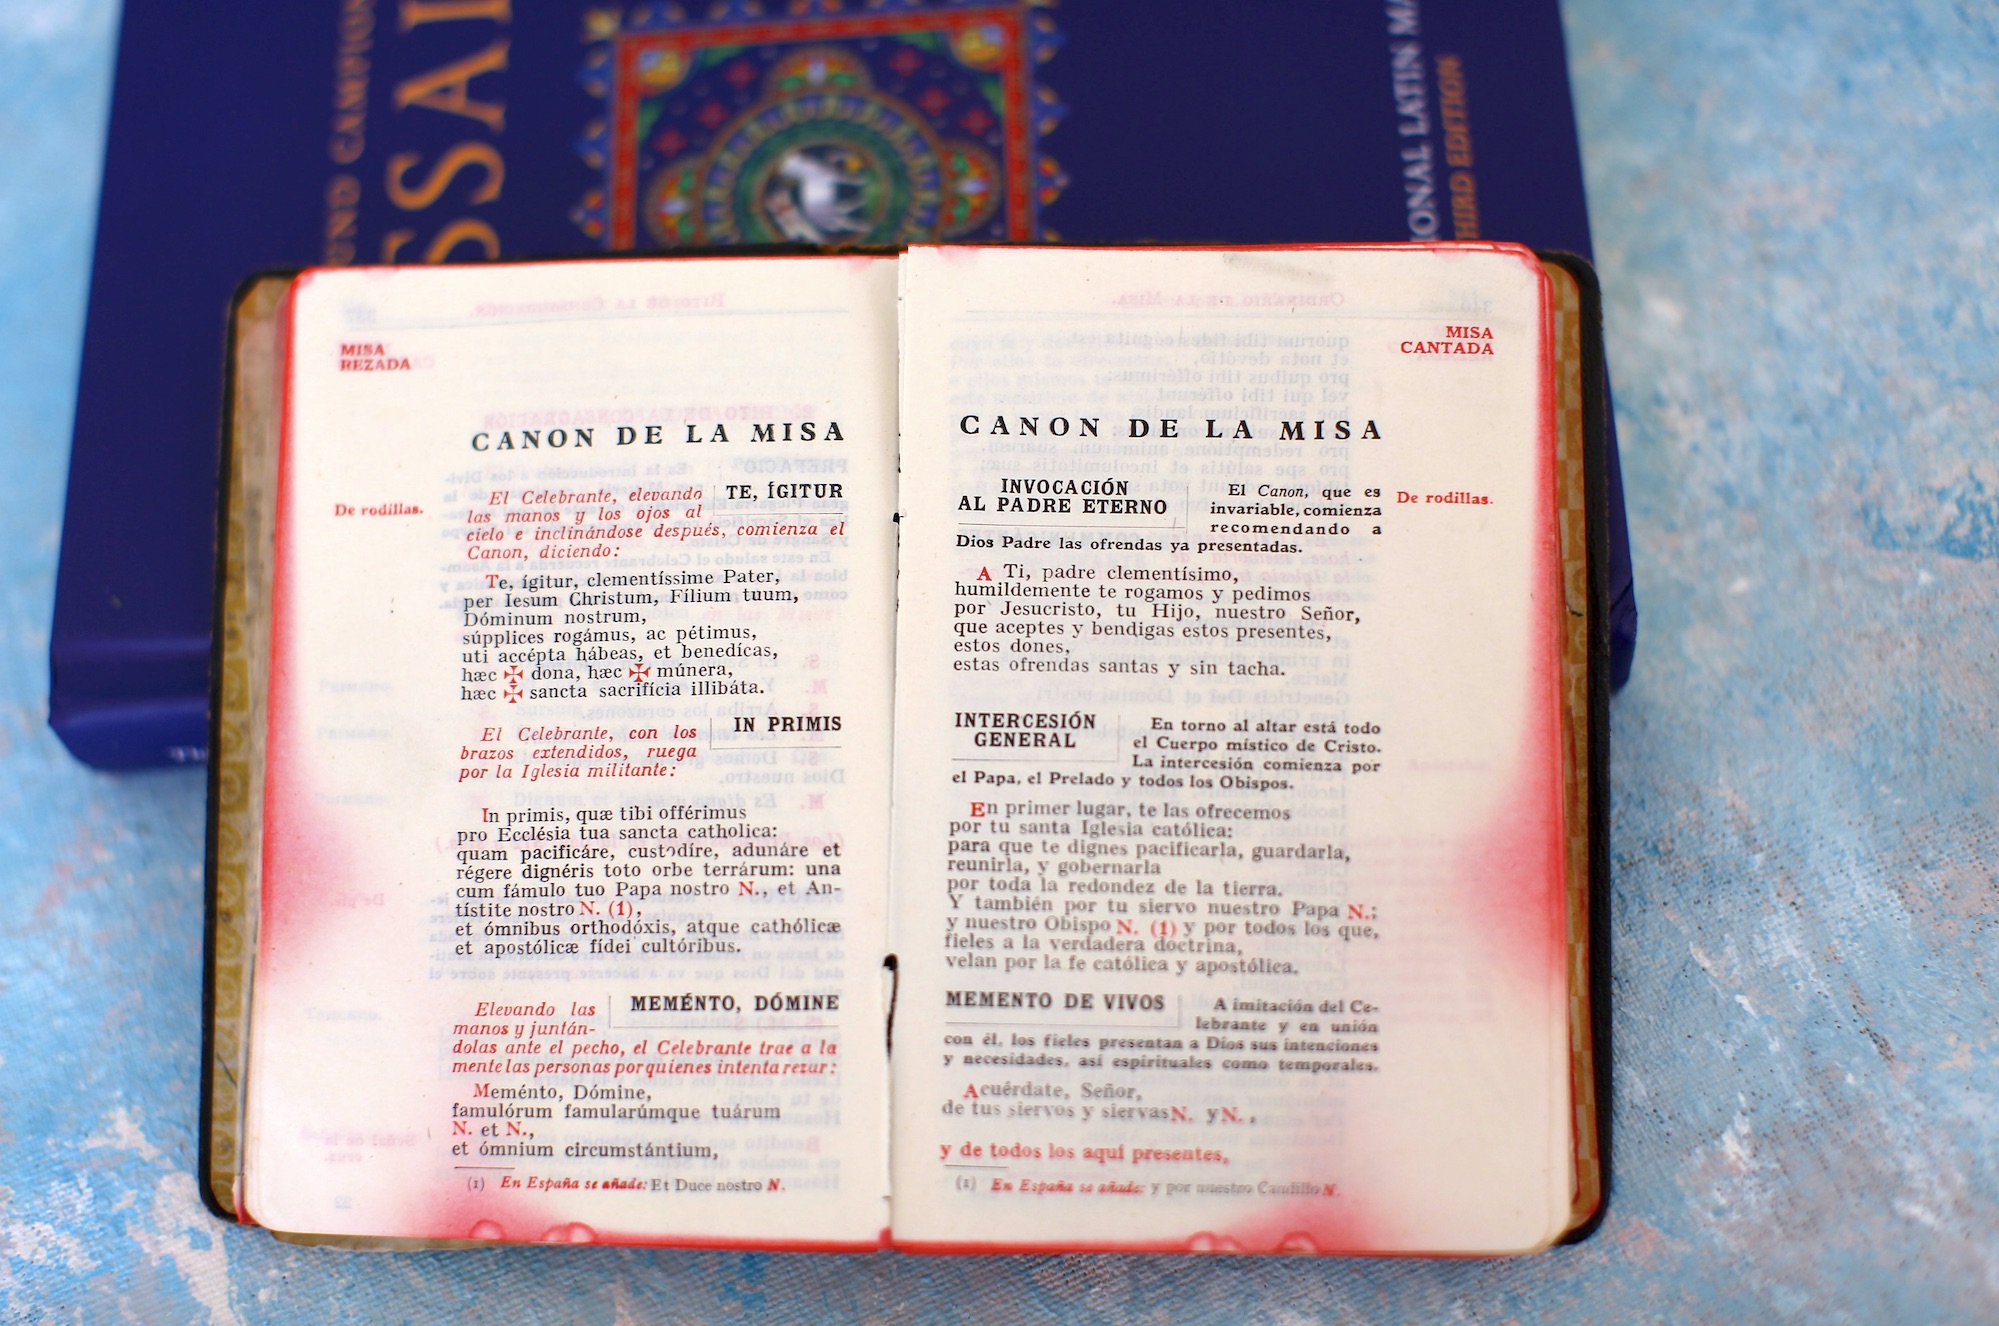 UND CAMPION
SSAL
ONAL LATIN MA
THIRD EDITION
MISA
REZADA
CANON DE LA MISA
De rodillas.
El Celebrante, elevando
las manos y los ojos al
TE, ÍGITUR
cielo e inclinándose después, comienza el
Canon, diciendo:
Te, ígitur, clementíssime Pater,
per Iesum Christum, Fílium tuum,
Dóminum nostrum,
súpplices rogámus, ac pétimus,
uti accépta hábeas, et benedícas,
hæc ✠ dona, hæc ✠ múnera,
hæc ✠ sancta sacrifícia illibáta.
El Celebrante, con los
brazos extendidos, ruega
IN PRIMIS
por la Iglesia militante:
In primis, quæ tibi offérimus
pro Ecclésia tua sancta catholica:
quam pacificáre, custodíre, adunáre et
régere dignéris toto orbe terrárum: una
cum fámulo tuo Papa nostro N., et An-
tístite nostro N. (1),
et ómnibus orthodóxis, atque cathólicæ
et apostólicæ fídei cultóribus.
Elevando las
manos y juntán-
MEMÉNTO, DÓMINE
dolas ante el pecho, el Celebrante trae a la
mente las personas por quienes intenta rezar:
Meménto, Dómine,
famulórum famularúmque tuárum
N. et N.,
et ómnium circumstántium,
(1) En España se añade: Et Duce nostro N.
MISA
CANTADA
CANON DE LA MISA
INVOCACIÓN
AL PADRE ETERNO
El Canon, que es
invariable, comienza
recomendando a
De rodillas.
Dios Padre las ofrendas ya presentadas.
A Ti, padre clementísimo,
humildemente te rogamos y pedimos
por Jesucristo, tu Hijo, nuestro Señor,
que aceptes y bendigas estos presentes,
estos dones,
estas ofrendas santas y sin tacha.
INTERCESIÓN
GENERAL
En torno al altar está todo
el Cuerpo místico de Cristo.
La intercesión comienza por
el Papa, el Prelado y todos los Obispos.
En primer lugar, te las ofrecemos
por tu santa Iglesia católica:
para que te dignes pacificarla, guardarla,
reunirla, y gobernarla
por toda la redondez de la tierra.
Y también por tu siervo nuestro Papa N.;
y nuestro Obispo N. (1) y por todos los que,
fieles a la verdadera doctrina,
velan por la fe católica y apostólica.
MEMENTO DE VIVOS
A imitación del Ce-
lebrante y en unión
con él, los fieles presentan a Dios sus intenciones
y necesidades, así espirituales como temporales.
Acuérdate, Señor,
de tus siervos y siervas N. y N.,
y de todos los aquí presentes,
(1) En España se añade: y por nuestro Caudillo N.